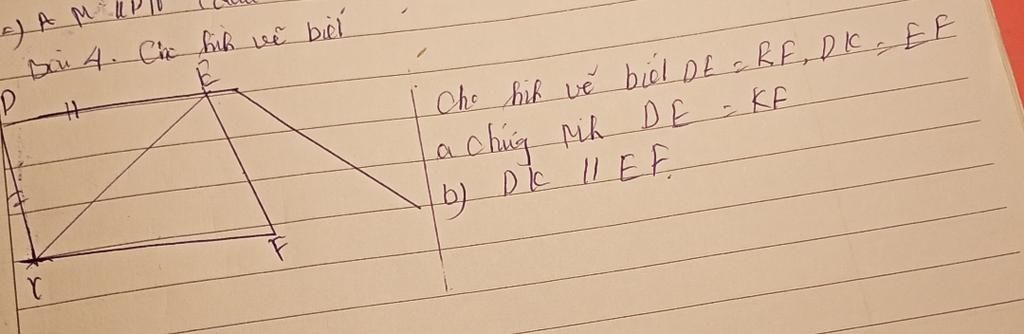 c) A M
Bài 4. Cho hình vẽ biết
D
E
K
F
Cho hình vẽ biết DE = KF, DK = EF
a chứng minh DE = KF
b) DK // EF.